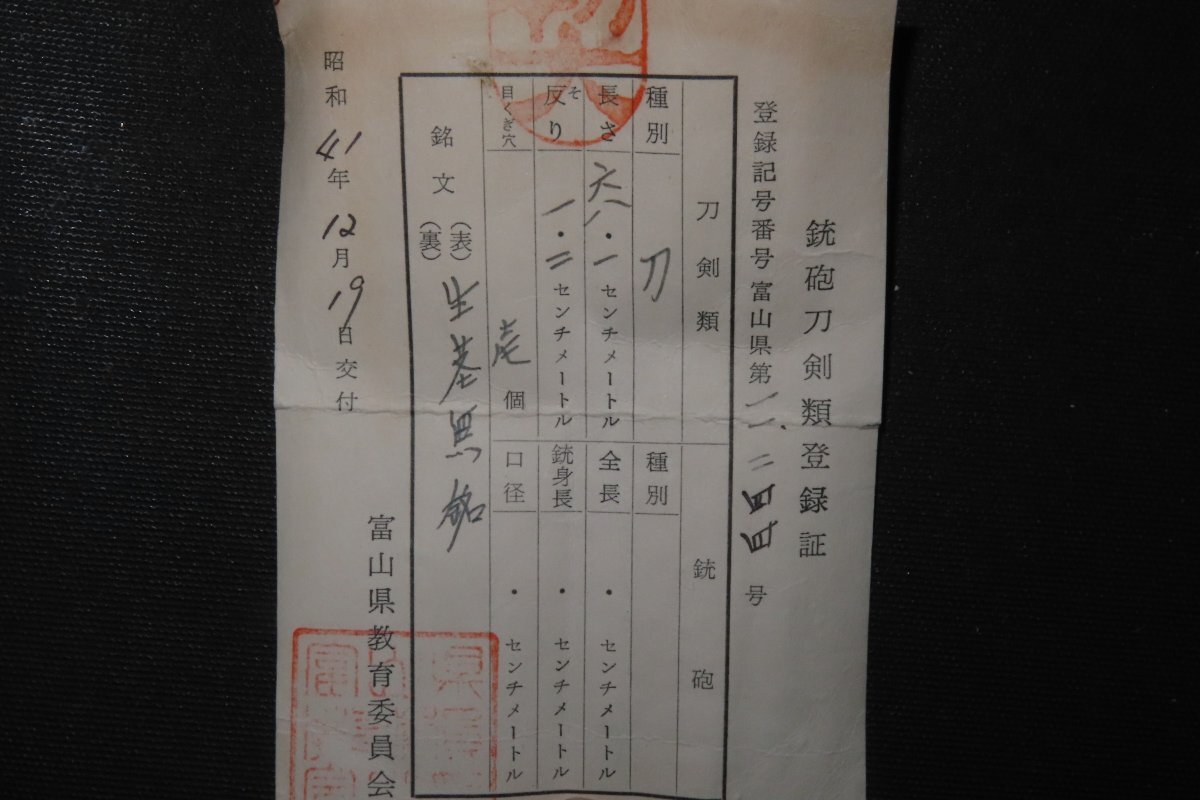 銃砲刀剣類登録証
登録記号番号富山県第一一、二四四号
刀剣類
種別 刀
長さ 六八・一センチメートル
反り そ 一・二センチメートル
目くぎ穴 壱個
銃砲
種別
全長 ・センチメートル
銃身長 ・センチメートル
口径 ・センチメートル
銘文 (表) 生茎無銘
(裏)
富山県教育委員会
昭和41年12月19日交付